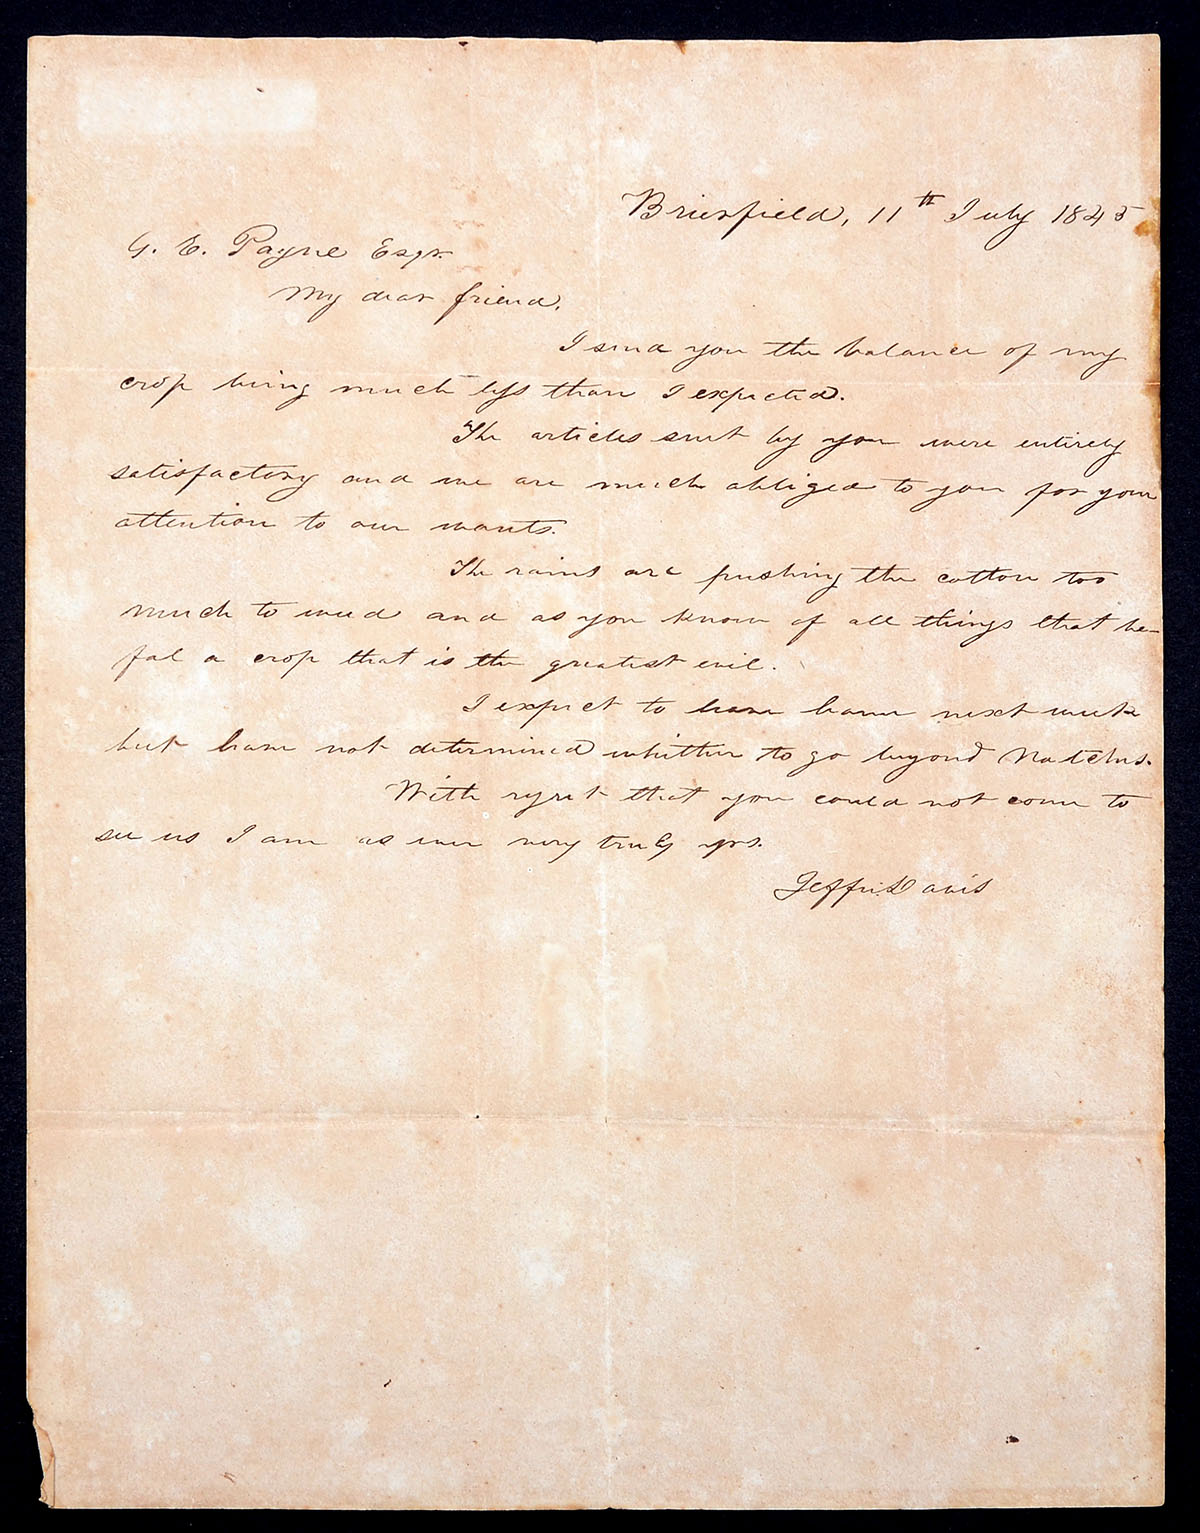 Brierfield, 11th July 1845
G. E. Payne Esqr.
My dear friend,
I send you the balance of my
crop being much less than I expected.
The articles sent by you were entirely
satisfactory and we are much obliged to you for your
attention to our wants.
The rains are pushing the cotton too
much to weed and as you know of all things that be-
fal a crop that is the greatest evil.
I expect to leave home next week
but have not determined whether to go beyond Natches.
With regret that you could not come to
see us I am as ever very truly yrs.
Jeffn. Davis